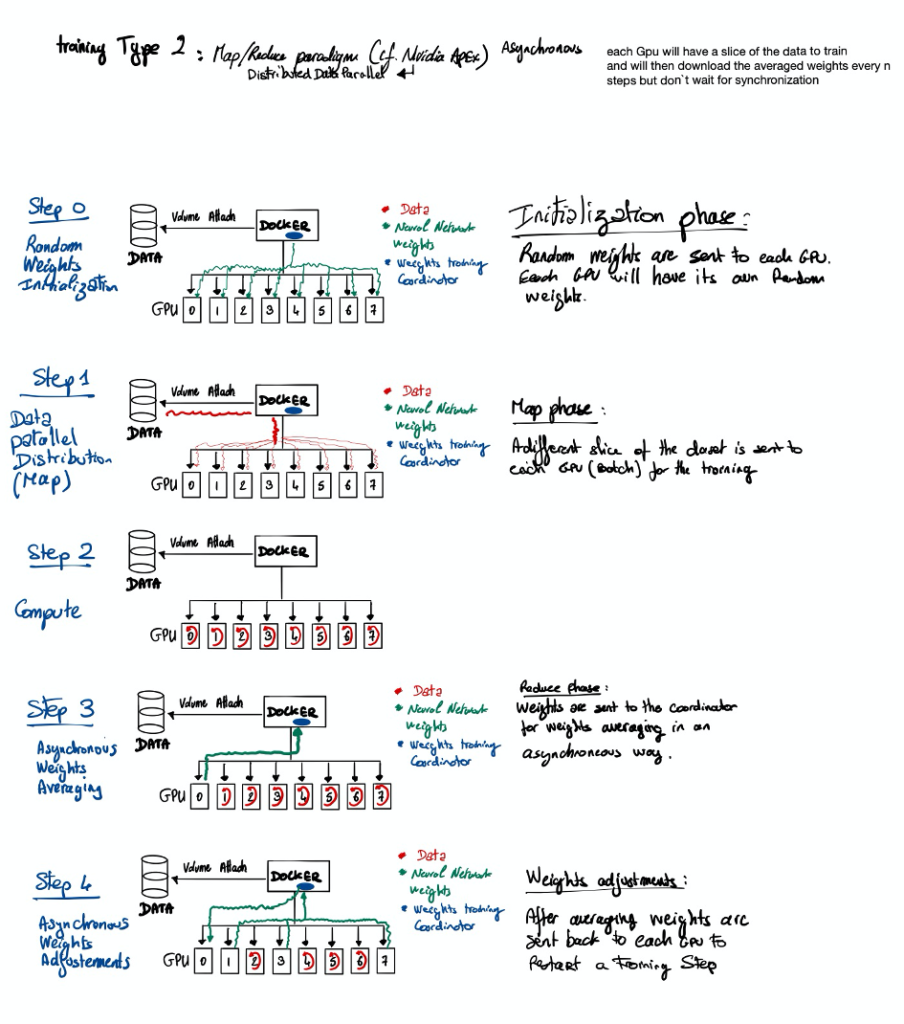 training Type 2 : Map/Reduce paradigm (cf. Nvidia Apex) Asynchronous
Distributed Data Parallel
each Gpu will have a slice of the data to train
and will then download the averaged weights every n
steps but don`t wait for synchronization
Step 0
Random
Weights
Initialization
Volume Attach
DOCKER
DATA
GPU 0 1 2 3 4 5 6 7
Data
Neural Network
weights
Weights training
Coordinator
Initialization phase :
Random weights are sent to each GPU.
Each GPU will have its own Random
weights.
Step 1
Data
parallel
Distribution
(Map)
Volume Attach
DOCKER
DATA
GPU 0 1 2 3 4 5 6 7
Data
Neural Network
weights
Weights training
Coordinator
Map phase :
A different slice of the dataset is sent to
each GPU (Batch) for the training
Step 2
Compute
Volume Attach
DOCKER
DATA
GPU 0 1 2 3 4 5 6 7
Step 3
Asynchronous
Weights
Averaging
Volume Attach
DOCKER
DATA
GPU 0 1 2 3 4 5 6 7
Data
Neural Network
weights
Weights training
Coordinator
Reduce phase :
Weights are sent to the coordinator
for weights averaging in an
asynchroneous way.
Step 4
Asynchronous
Weights
Adjustements
Volume Attach
DOCKER
DATA
GPU 0 1 2 3 4 5 6 7
Data
Neural Network
weights
Weights training
Coordinator
Weights adjustments :
After averaging weights are
sent back to each GPU to
Restart a Training Step